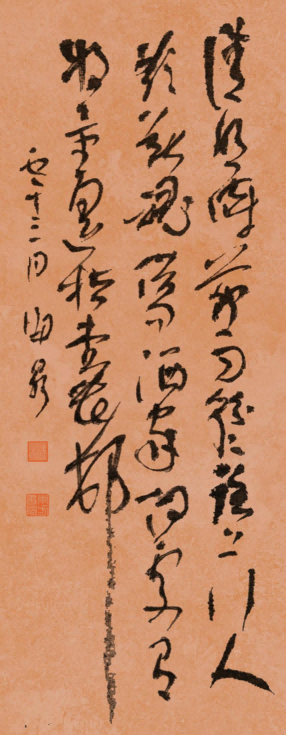 清明時節雨紛紛路上行人
欲斷魂借問酒家何處有
牧童遙指杏花邨
十二月